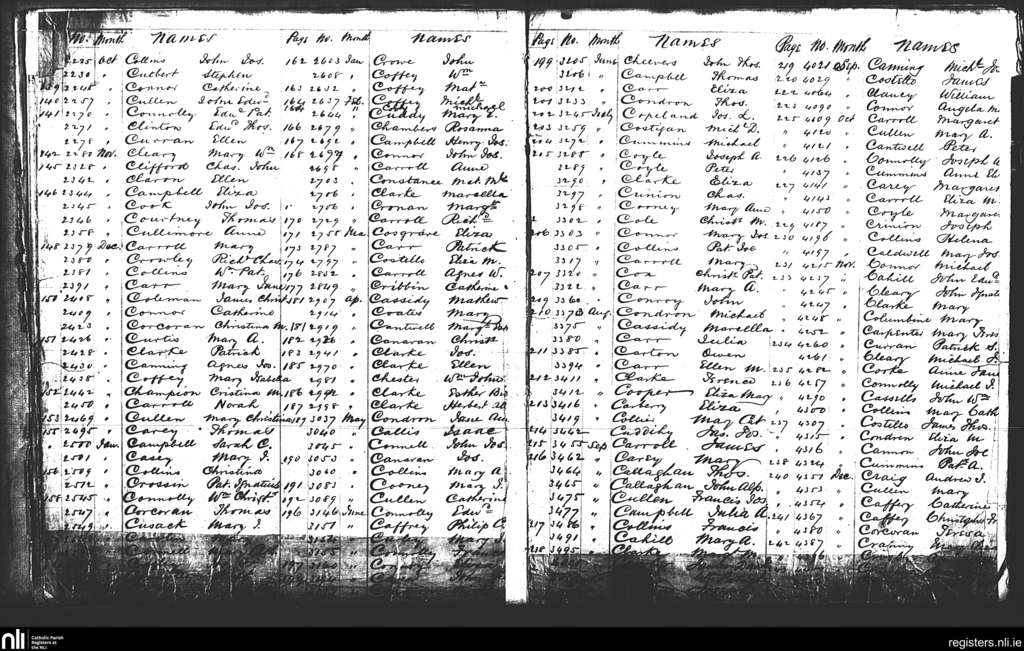 No. Month Names
2225 Oct Collins John Jos.
2230 " Cutbert Stephen
139 2248 " Connor Catherine
140 2257 " Cullen John Edwd
141 2270 " Connolley Edwd Pat.
2271 " Clinton Edwd Thos.
2278 " Curran Ellen
142 2282 Nov. Cleary Mary Wm
145 2328 " Clifford Jas. John
2342 " Claron Ellen
146 2344 " Campbell Eliza
2345 " Cook John Jos.
2346 " Courtney Thomas
2358 " Cullimore Anne
148 2379 Dec. Carroll Mary
2380 " Crowley Richd Chas.
2381 " Collins Wm Pat.
2391 " Carr Mary Jane
150 2408 " Coleman James Christ
2409 " Connor Catherine
2423 " Corcoran Christina M.
151 2426 " Curtis Mary A.
2428 " Clarke Patrick
2430 " Canning Agnes Jos.
2438 " Coffey Mary Isabella
152 2442 " Champion Cristina M.
2450 " Carroll Noah
153 2469 " Cullen Mary Christina
155 2495 " Carey Thomas
2500 Jan. Campbell Sarah C.
2501 " Casey Mary J.
156 2509 " Collins Christina
2512 " Crossin Pat. Ignatius
158 2545 " Connolly Wm Christr
2547 " Corcoran Thomas
2549 " Cusack Mary J.
Page No. Month Names
162 2603 Jan Crowe John
2608 " Coffey Wm
163 2632 " Coffey Matw
164 2637 Feb. Coffey Michl
2644 " Cuddy Mary E.
166 2679 " Chambers Rosanna
167 2692 " Campbell Henry Jos.
168 2694 " Connor John Jos.
2698 " Carroll Anne
2703 " Constance
2706 " Clarke Marcella
" 2706 " Cronan Margt
170 2729 " Carroll Richd
171 2755 Mar Cosgrave Eliza
173 2787 " Carr Patrick
174 2797 " Costello Eliz M.
176 2832 " Carroll Agnes W.
177 2849 " Cribbin Catherine
181 2907 Ap. Cassidy Mathew
2914 " Coates Mary
181 2919 " Cantwell Margt
182 2926 " Canavan Christr
183 2941 " Clarke Jos.
185 2970 " Clarke Ellen
2981 " Chester Wm John
186 2992 " Clarke Esther
187 2998 " Clarke Herbert
189 3037 May Condron Jane
3040 " Callis Isaac
3045 " Connell John Jos.
190 3053 " Canavan Jos.
3060 " Collins Mary A.
191 3083 " Cooney Mary J.
192 3089 " Cullen Catherine
196 3146 June Connolly Edwd
3151 " Caffrey Philip
Page No. Month Names
199 3205 June Cheevers John Thos.
3206 " Campbell Thomas
200 3212 " Carr Eliza
201 3233 " Condron Thos.
202 3245 July Copeland Jos. L.
203 3259 " Costigan Michl D.
204 3272 " Cummins Michael
205 3288 " Coyle Joseph A.
3289 " Coyle Peter
3290 " Clarke Eliza
3297 " Crinion Chas.
3298 " Corney Mary Anne
3302 " Cole Christr M.
206 3303 " Connor Mary Jos.
3305 " Collins Pat. Joe
3317 " Carroll Mary
207 3320 " Cox Christr Pat.
3322 " Carr Mary A.
209 3360 " Conroy John
210 3373 Aug. Condron Michael
3375 " Cassidy Marcella
3380 " Carr Julia
211 3385 " Carton Owen
3394 " Carr Ellen M.
212 3411 " Clarke Terence
3412 " Cooper Eliza Mary
213 3416 " Carbery Eliza
3419 " Collis Mary Cat
214 3442 " Cuddihy Jas. Jos.
215 3455 Sep Carroll James
216 3462 " Carey Mary
3464 " Callaghan Thos
3465 " Callaghan John Alp.
3475 " Cullen Francis Jos
3477 " Campbell Julia A.
217 3486 " Collins Francis
3491 " Cahill Mary A.
218 3495 " Clarke
Page No. Month Names
219 4021 Sep. Canning Michl Jos
220 4029 " Costello James
222 4064 " Clancy William
223 4098 " Connor Angela M.
225 4109 Oct Carroll Margaret
" 4120 " Cullen Mary A.
" 4121 " Cantwell Peter
226 4126 " Connolly Joseph A
" 4137 " Cummins Anne El
227 4141 " Carey Margaret
" 4143 " Carroll Eliza M.
" 4150 " Coyle Margaret
229 4187 " Crinion Joseph
230 4196 " Collins Helena
" 4197 " Caldwell Mary Jos.
231 4215 Nov. Connor Michael
233 4237 " Cahill John Edwd
4245 " Cleary John Ignats
4247 " Clarke Mary
4248 " Columbine Mary
4252 " Carpenter Mary
234 4260 " Curran Patrick S.
4261 " Cleary Michael J.
235 4282 " Corke Anne Jane
236 4287 " Connolly Michael J.
4290 " Cassells John Wm
4300 " Collins Mary Cath
237 4307 " Costello James Thos.
4315 " Condren Eliza M
" 4316 " Cannon John Joe
238 4324 " Cummins Pat. A.
240 4351 Dec. Craig Andrew J.
" 4353 " Cullen Mary
" 4354 " Caffery Catherine
241 4367 " Caffey Christopher
" 4380 " Corcoran Teresa
242 4387 "
nli
Catholic Parish
Registers at
the NLI
registers.nli.ie